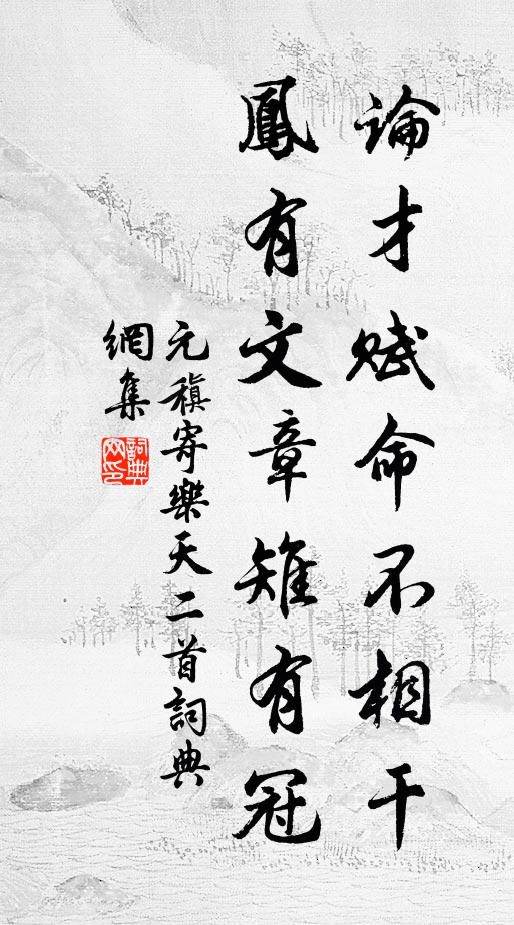 論才賦命不相干
鳳有文章雉有冠
元稹寄樂天二首詞典
網集
詞典
网印